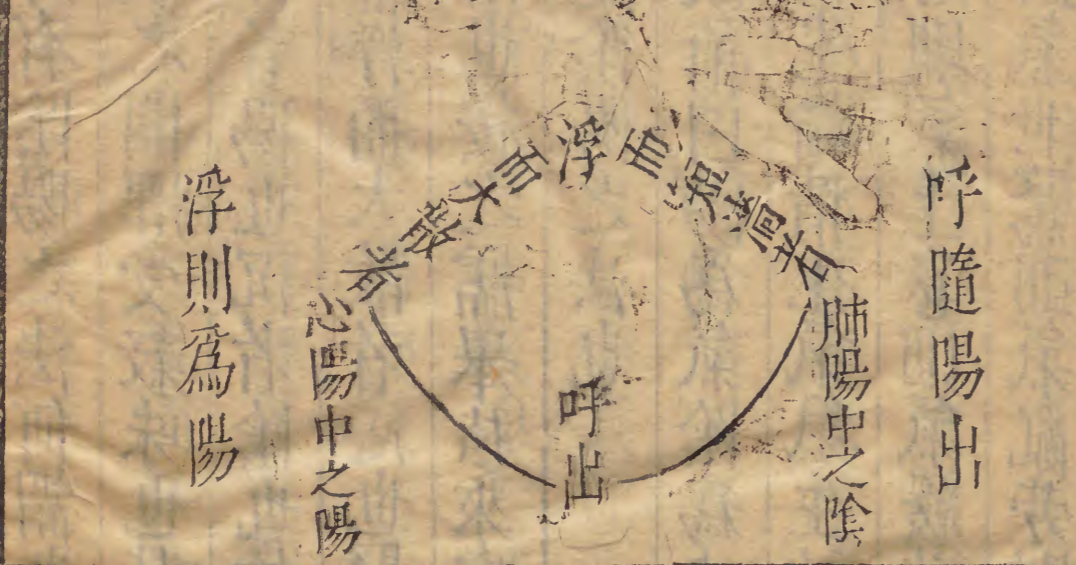 呼隨陽出
浮而短濇者
肺陽中之隂
呼出
浮而大散者
心陽中之陽
浮則爲陽